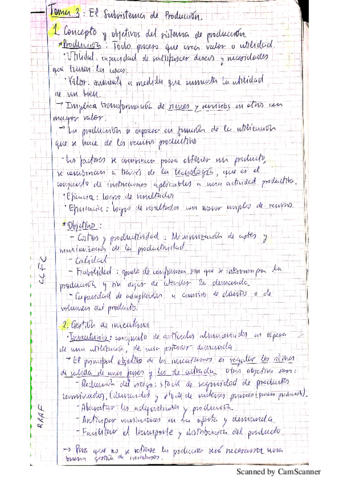 Tema 3: El Subsistema de Producción.
1. Concepto y objetivos del sistema de producción
• Producción: Todo proceso que crea valor o utilidad.
- Utilidad: capacidad de satisfacer deseos y necesidades
que tienen las cosas.
- Valor: aumenta a medida que aumenta la utilidad
de un bien.
→ Implica transformación de bienes y servicios en otros con
mayor valor.
→ La producción se expresa en función de la utilización
que se hace de los recursos productivos
- Los factores se combinan para obtener un producto,
se combinan a través de la tecnología, que es el
conjunto de instrucciones aplicables a una actividad productiva.
- Eficacia: logro de resultados
- Eficiencia: logro de resultados con menor empleo de recursos.
• Objetivos:
- Costes y productividad: Minimización de costes y
maximización de la productividad
- Calidad
- Fiabilidad: grado de confianza con que se interrumpa la
producción y se deje de atender la demanda.
- Capacidad de adaptarse a cambios de diseños o de
volumen del producto.
2. Gestión de inventarios
• Inventario: conjunto de artículos almacenados en espera
de una utilización, de una posterior demanda.
- El principal objetivo de los inventarios es regular los ritmos
de salida de unas fases y los de entrada. Otros objetivos son:
- Reducción del riesgo: stock de seguridad de productos
terminados (demanda) y stock de materias primas (proceso productivo).
- Abaratar las adquisiciones y producción
- Anticipar variaciones en la oferta y demanda
- Facilitar el transporte y distribución del producto.
→ Para que no se retrase la producción será necesaria una
buena gestión de inventarios.
Scanned by CamScanner